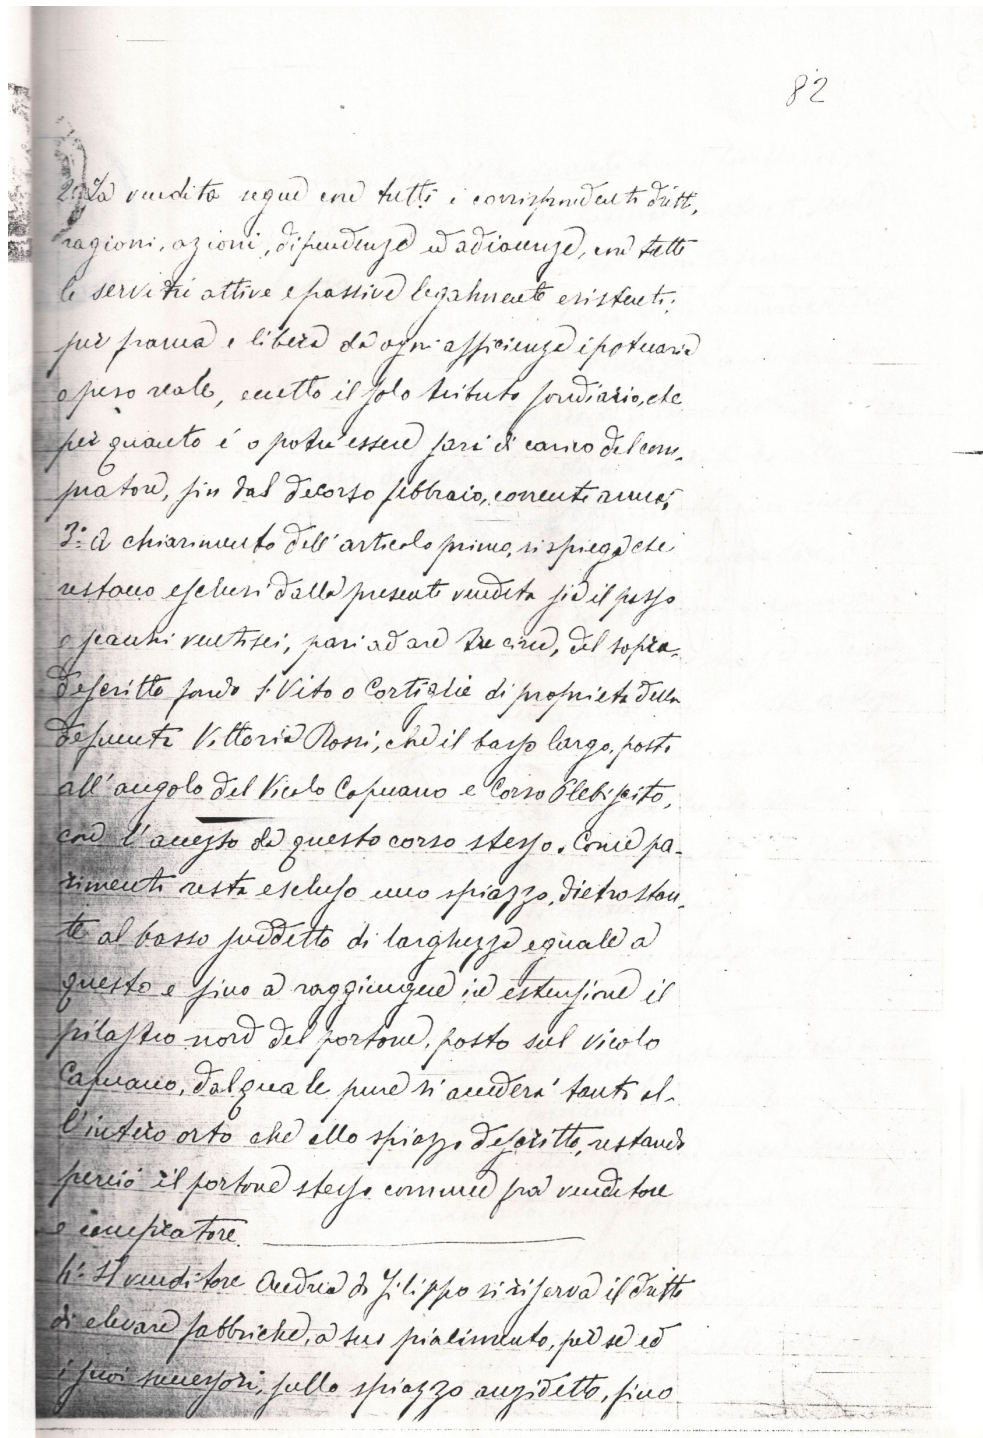 82
2º La vendita segue con tutti i corrispondenti dritti,
ragioni, azioni, dipendenze ed adiacenze, con tutte
le servitù attive e passive legalmente esistenti;
per franca e libera da ogni afficienza ipotecaria
o peso reale, eccetto il solo tributo fondiario, che
per quanto é o potrà essere sarà di carico del com-
pratore, fin dal decorso febbraio, corrente anno;
3º A chiarimento dell'articolo primo, si spiega che
restano esclusi dalla presente vendita sia il passo
o scanni ventisei, pari ad are tre circa, del sopra-
descritto fondo S. Vito o Cortiglie di proprietà della
defunta Vittoria Rossi, che il basso largo, posto
all'angolo del Vicolo Capuano e Corso Plebiscito,
con l'accesso da questo corso stesso. Come pa-
rimenti resta escluso uno spiazzo, dietrostan-
te al basso suddetto di larghezza eguale a
questo e fino a raggiungere in estensione il
pilastro nord del portone, posto sul vicolo
Capuano, dal quale pure si accederà tanto al-
l'intero orto che allo spiazzo descritto, restando
perciò il portone stesso comune fra venditore
e compratore.
4º Il venditore Andrea di Filippo si riserva il dritto
di elevare fabbriche, a suo piacimento, per se ed
i suoi successori, sullo spiazzo anzidetto, fino